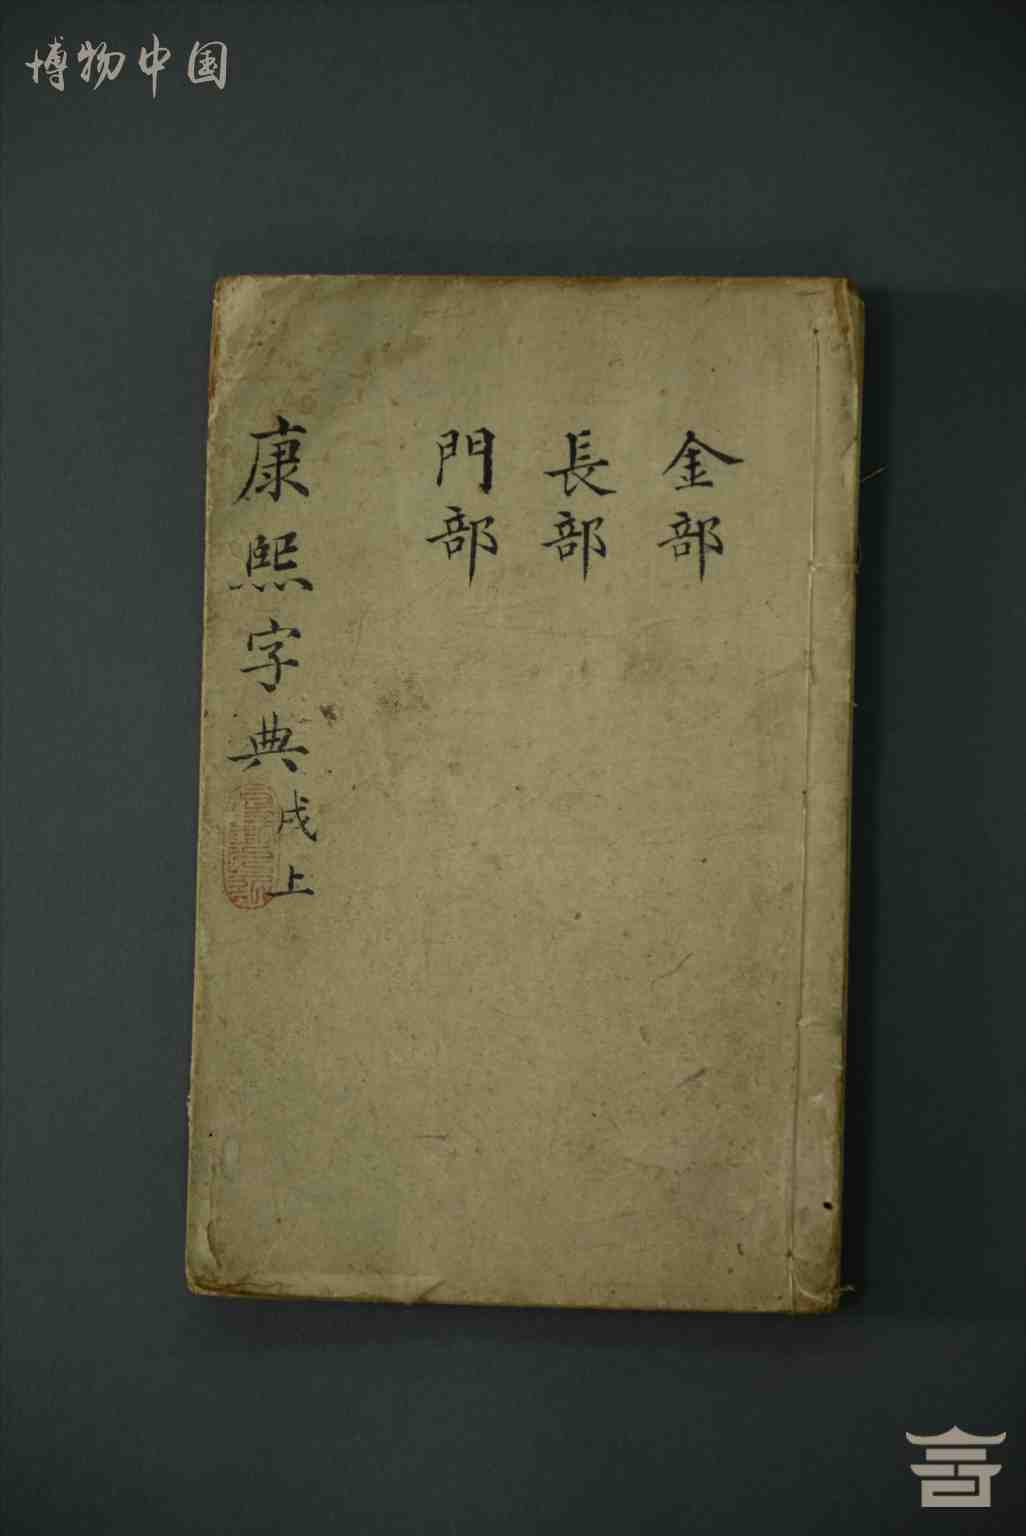 博物中国
金部
長部
門部
康熙字典戌上